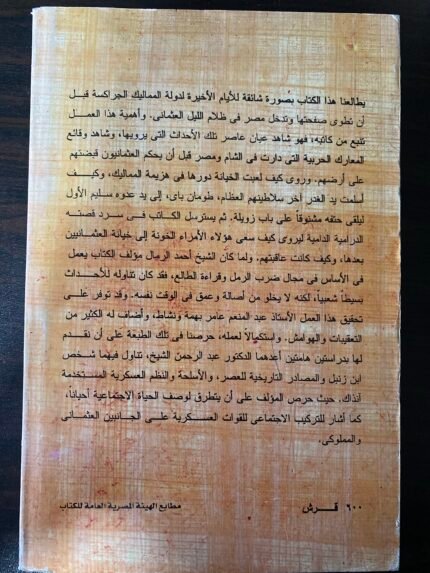 يطالعنا هذا الكتاب بصورة شائقة للأيام الأخيرة لدولة المماليك الجراكسة قبل
أن تطوى صفحتها وتدخل مصر فى ظلام الليل العثمانى. وأهمية هذا العمل
تنبع من كاتبه، فهو شاهد عيان عاصر تلك الأحداث التى يرويها، وشاهد وقائع
المعارك الحربية التى دارت فى الشام ومصر قبل أن يحكم العثمانيون قبضتهم
على أرضهم. وروى كيف لعبت الخيانة دورها فى هزيمة المماليك، وكيف
أسلمت يد الغدر آخر سلاطينهم العظام، طومان باى، إلى يد عدوه سليم الأول
ليلقى حتفه مشنوقاً على باب زويلة. ثم يسترسل الكاتب فى سرد قصته
الدرامية الدامية ليروى كيف سعى هؤلاء الأمراء الخونة إلى خيانة العثمانيين
بعدها، وكيف كانت عاقبتهم. ولما كان الشيخ أحمد الرمال مؤلف الكتاب يعمل
فى الأساس فى مجال ضرب الرمل وقراءة الطالع، فقد كان تناوله للأحداث
بسيطاً شعبياً، لكنه لا يخلو من أصالة وعمق فى الوقت نفسه. وقد توفر على
تحقيق هذا العمل الأستاذ عبد المنعم عامر بهمة ونشاط، وأضاف له الكثير من
التعقيبات والهوامش. واستكمالاً لعمله، حرصنا فى تلك الطبعة على أن نقدم
لها بدراستين هامتين أعدهما الدكتور عبد الرحمن الشيخ، تناول فيهما شخص
ابن زنبل والمصادر التاريخية للعصر، والأسلحة والنظم العسكرية المستخدمة
آنذاك. حيث حرص المؤلف على أن يتطرق لوصف الحياة الاجتماعية أحياناً،
كما أشار للتركيب الاجتماعى للقوات العسكرية على الجانبين العثمانى
والمملوكى.
٦٠٠ قرش
مطابع الهيئة المصرية العامة للكتاب